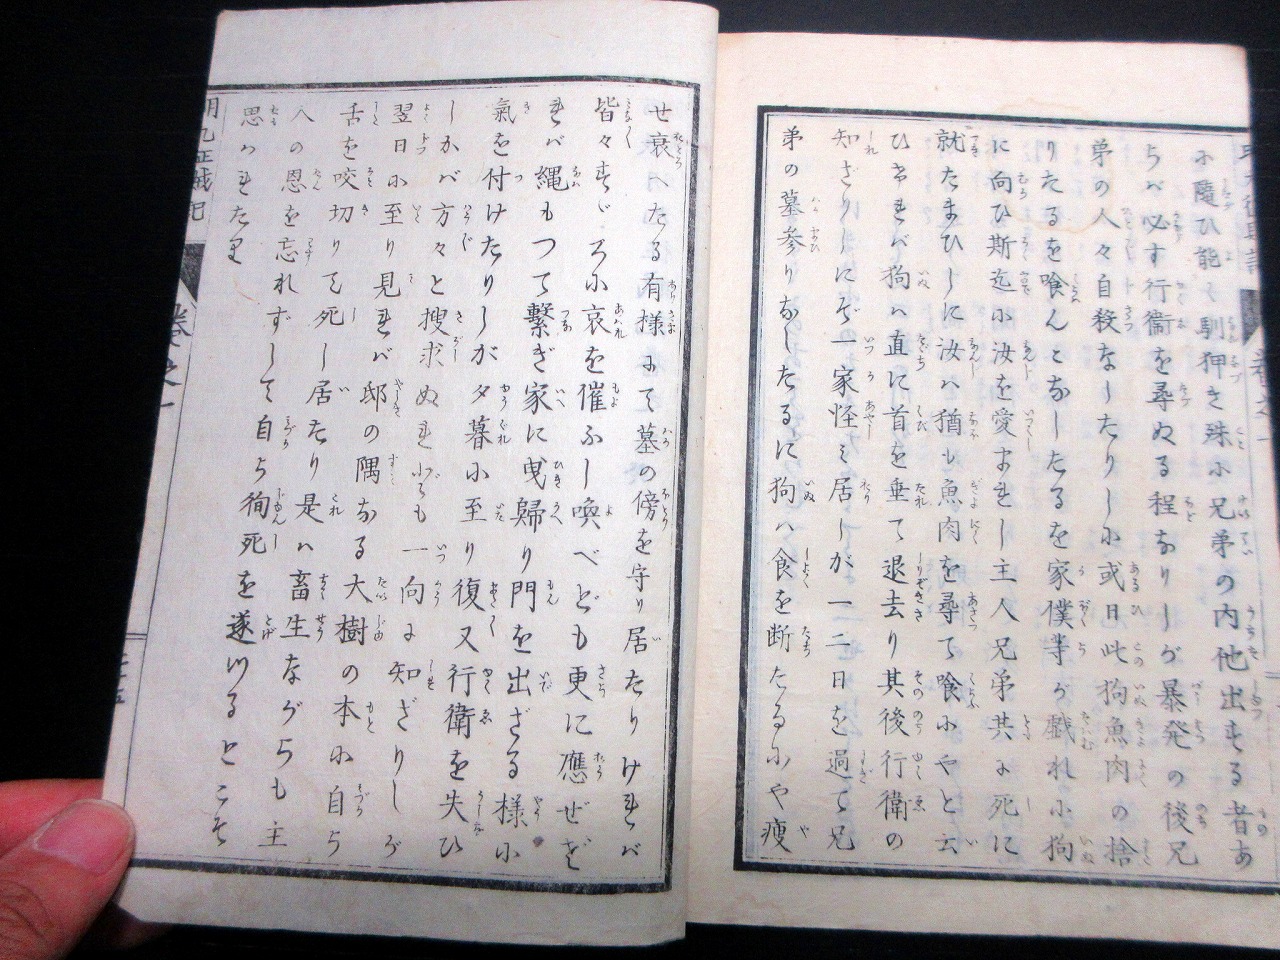 に随ひ能く馴狎き殊に兄弟の内他出する者あ
らバ必す行衞を尋ぬる程なりしが暴発の後兄
弟の人々自殺なしたりしに或日此狗魚肉の捨
りたるを喰んとなしたるを家僕等が戯れに狗
に向ひ斯迄に汝を愛ませし主人兄弟共に死に
就たまひしに汝ハ猶も魚肉を尋て喰ふやと云
ひけれバ狗ハ直に首を垂て退去り其後行衞の
知ざりしにぞ一家怪ミ居しが一二日を過て兄
弟の墓参りなしたるに狗ハ食を断たるにや痩
せ衰へたる有様にて墓の傍を守り居たりけれバ
皆々すゞろに哀を催ふし喚べども更に應ぜざ
れバ縄もつて繋ぎ家に曳歸り門を出ざる様に
氣を付けたりしが夕暮に至り復又行衞を失ひ
しかバ方々と搜求ぬれども一向に知ざりしが
翌日に至り見れバ邸の隅なる大樹の本に自ら
舌を咬切りて死し居たり是ハ畜生ながらも主
人の恩を忘れずして自ら徇死を遂つるとこそ
思ハれたれ
明九征賊記
巻之一